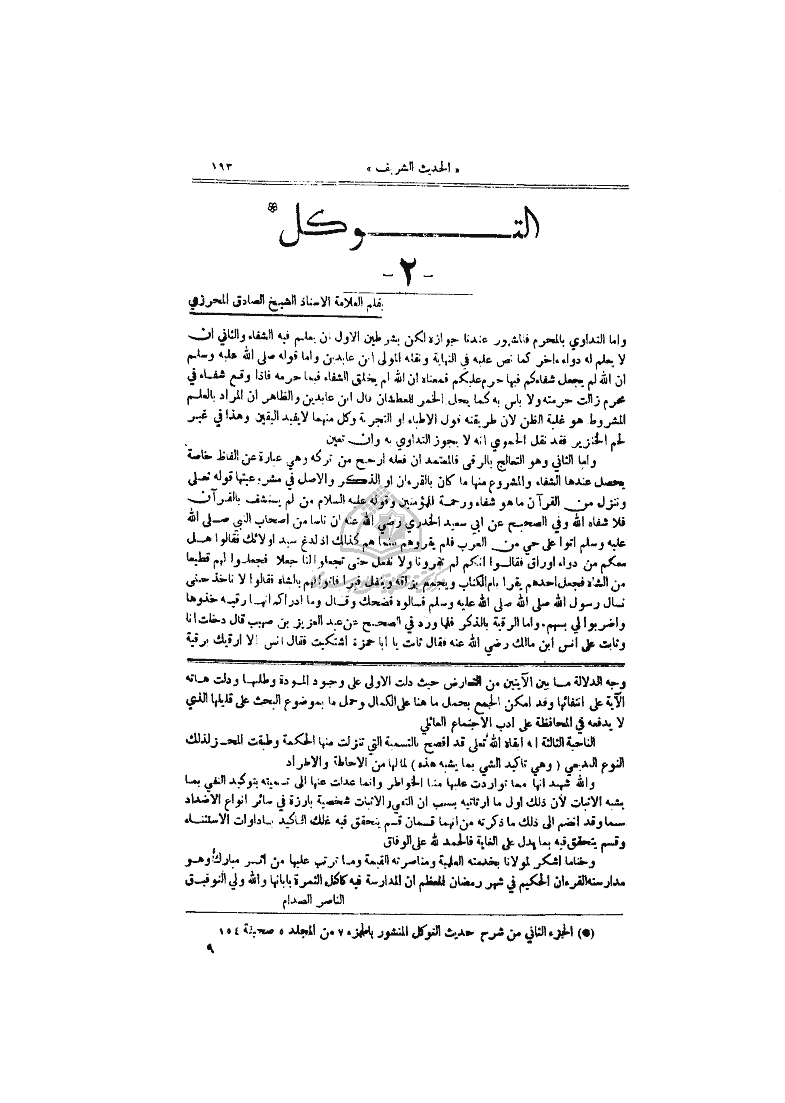 « الحديث الشريف » ١٩٣
التوكل *
- ٢ -
بقلم العلامة الاستاذ الشيخ الصادق المحرزي
واما التداوي بالمحرم فالمشهور عندنا جوازه لكن بشرطين الاول ان يعلم فيه الشفاء والثاني ان
لا يعلم له دواء ءاخر كما نص عليه في النهاية ونقله المولى ابن عابدين واما قوله صلى الله عليه وسلم
ان الله لم يجعل شفاءكم فيما حرم عليكم فمعناه ان الله لم يخلق الشفاء فيما حرمه فاذا وقع شفاء في
محرم زالت حرمته ولا باس به كما يحل الخمر للعطشان قال ابن عابدين والظاهر ان المراد بالعلم
المشروط هو غلبة الظن لان طريقته قول الاطباء او التجربة وكل منهما لا يفيد اليقين وهذا في غير
لحم الخنزير فقد نقل الحموي انه لا يجوز التداوي به وان تعين
واما الثاني وهو التعالج بالرقى فالمعتمد ان فعله ارجح من تركه وهي عبارة عن الفاظ خاصة
يحصل عندها الشفاء والمشروع منها ما كان بالقرءان او الذكر والاصل في مشروعيتها قوله تعالى
وننزل من القرآن ما هو شفاء ورحمة للمؤمنين وقوله عليه السلام من لم يستشف بالقرآن
فلا شفاه الله وفي الصحيح عن ابي سعيد الخدري رضي الله عنه ان ناسا من اصحاب النبي صلى الله
عليه وسلم اتوا على حي من العرب فلم يقروهم بينما هم كذلك اذ لدغ سيد اولائك فقالوا هل
معكم من دواء اوراق فقالوا انكم لم تقرونا ولا نفعل حتى تجعلوا لنا جعلا فجعلوا لهم قطيعا
من الشاه فجعل احدهم يقرا بام الكتاب ويجمع بزاقه ويتفل فبرا فاتوا لهم بالشاه فقالوا لا ناخذ حتى
نسال رسول الله صلى الله عليه وسلم فسالوه فضحك وقال وما ادراك انها رقيه خذوها
واضربوا لي بسهم. واما الرقية بالذكر فلما ورد في الصحيح عن عبد العزيز بن صهيب قال دخلت انا
وثابت على انس ابن مالك رضي الله عنه فقال ثابت يا ابا حمزة اشتكيت فقال انس الا ارقيك برقية
وجه الدلالة ما بين الآيتين من التعارض حيث دلت الاولى على وجود المودة وطلبها ودلت هاته
الآية على انتفائها وقد امكن الجمع بحمل ما هنا على الكمال وحمل ما بموضوع البحث على قليلها الذي
لا يدفعه في المحافظة على ادب الاجتماع العائلي
الناحية الثالثة انه ابقاه الله تعلى قد افصح بالتسمية التي تنزلت منها الحكمة وطبقت المحز لذلك
النوع البديعي ( وهي تاكيد الشي بما يشبه هذه ) لما لها من الاحاطة والاطراد
والله شهيد انها مما تواردت عليها منا الخواطر وانما عدلت عنها الى تسميته بتوكيد النفي بما
يشبه الاثبات لأن ذلك اول ما ارتاتيه بسبب ان النفي والاثبات شخصية بارزة في سائر انواع الاضداد
سيما وقد انضم الى ذلك ما ذكرته من انهما قسمان قسم يتحقق فيه ذلك التاكيد باداوات الاستثناء
وقسم يتحقق فيه بما يدل على الغاية فالحمد لله على الوفاق
وختاما اشكر لمولانا بخدمته العلمية ومناصرته القيمة وما ترتب عليها من اثر مبارك وهو
مدارسته القرءان الحكيم في شهر رمضان المعظم ان المدارسة فيه كاكل الثمرة بابانها والله ولي التوفيق
الناصر الصدام
(*) الجزء الثاني من شرح حديث التوكل المنشور بالجزء ٧ من المجلد ٥ صحيفة ١٥٤
٩